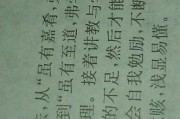 ，从“虽有嘉肴，
到“虽有至道，弗
理。接着讲教与学
的不足，然后才能
会自我勉励，不断
赅，浅显易懂。